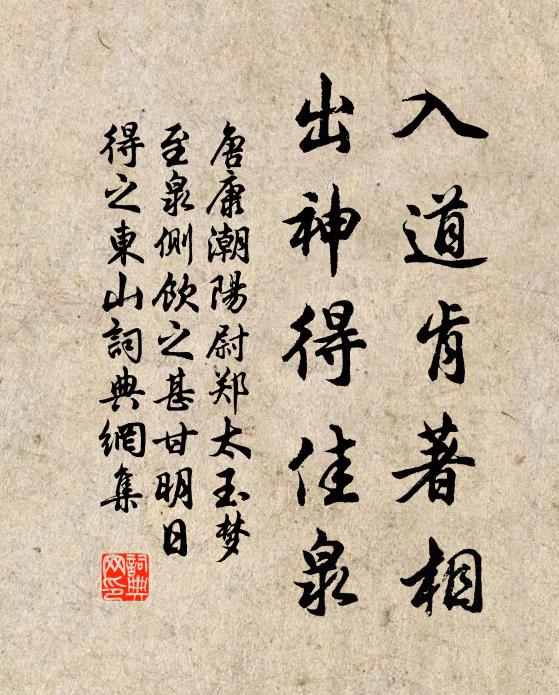 入道肯著相
出神得佳泉
唐庚潮陽尉郑太玉梦
至泉侧饮之甚甘明日
得之東山詞典網集
詞典
网印